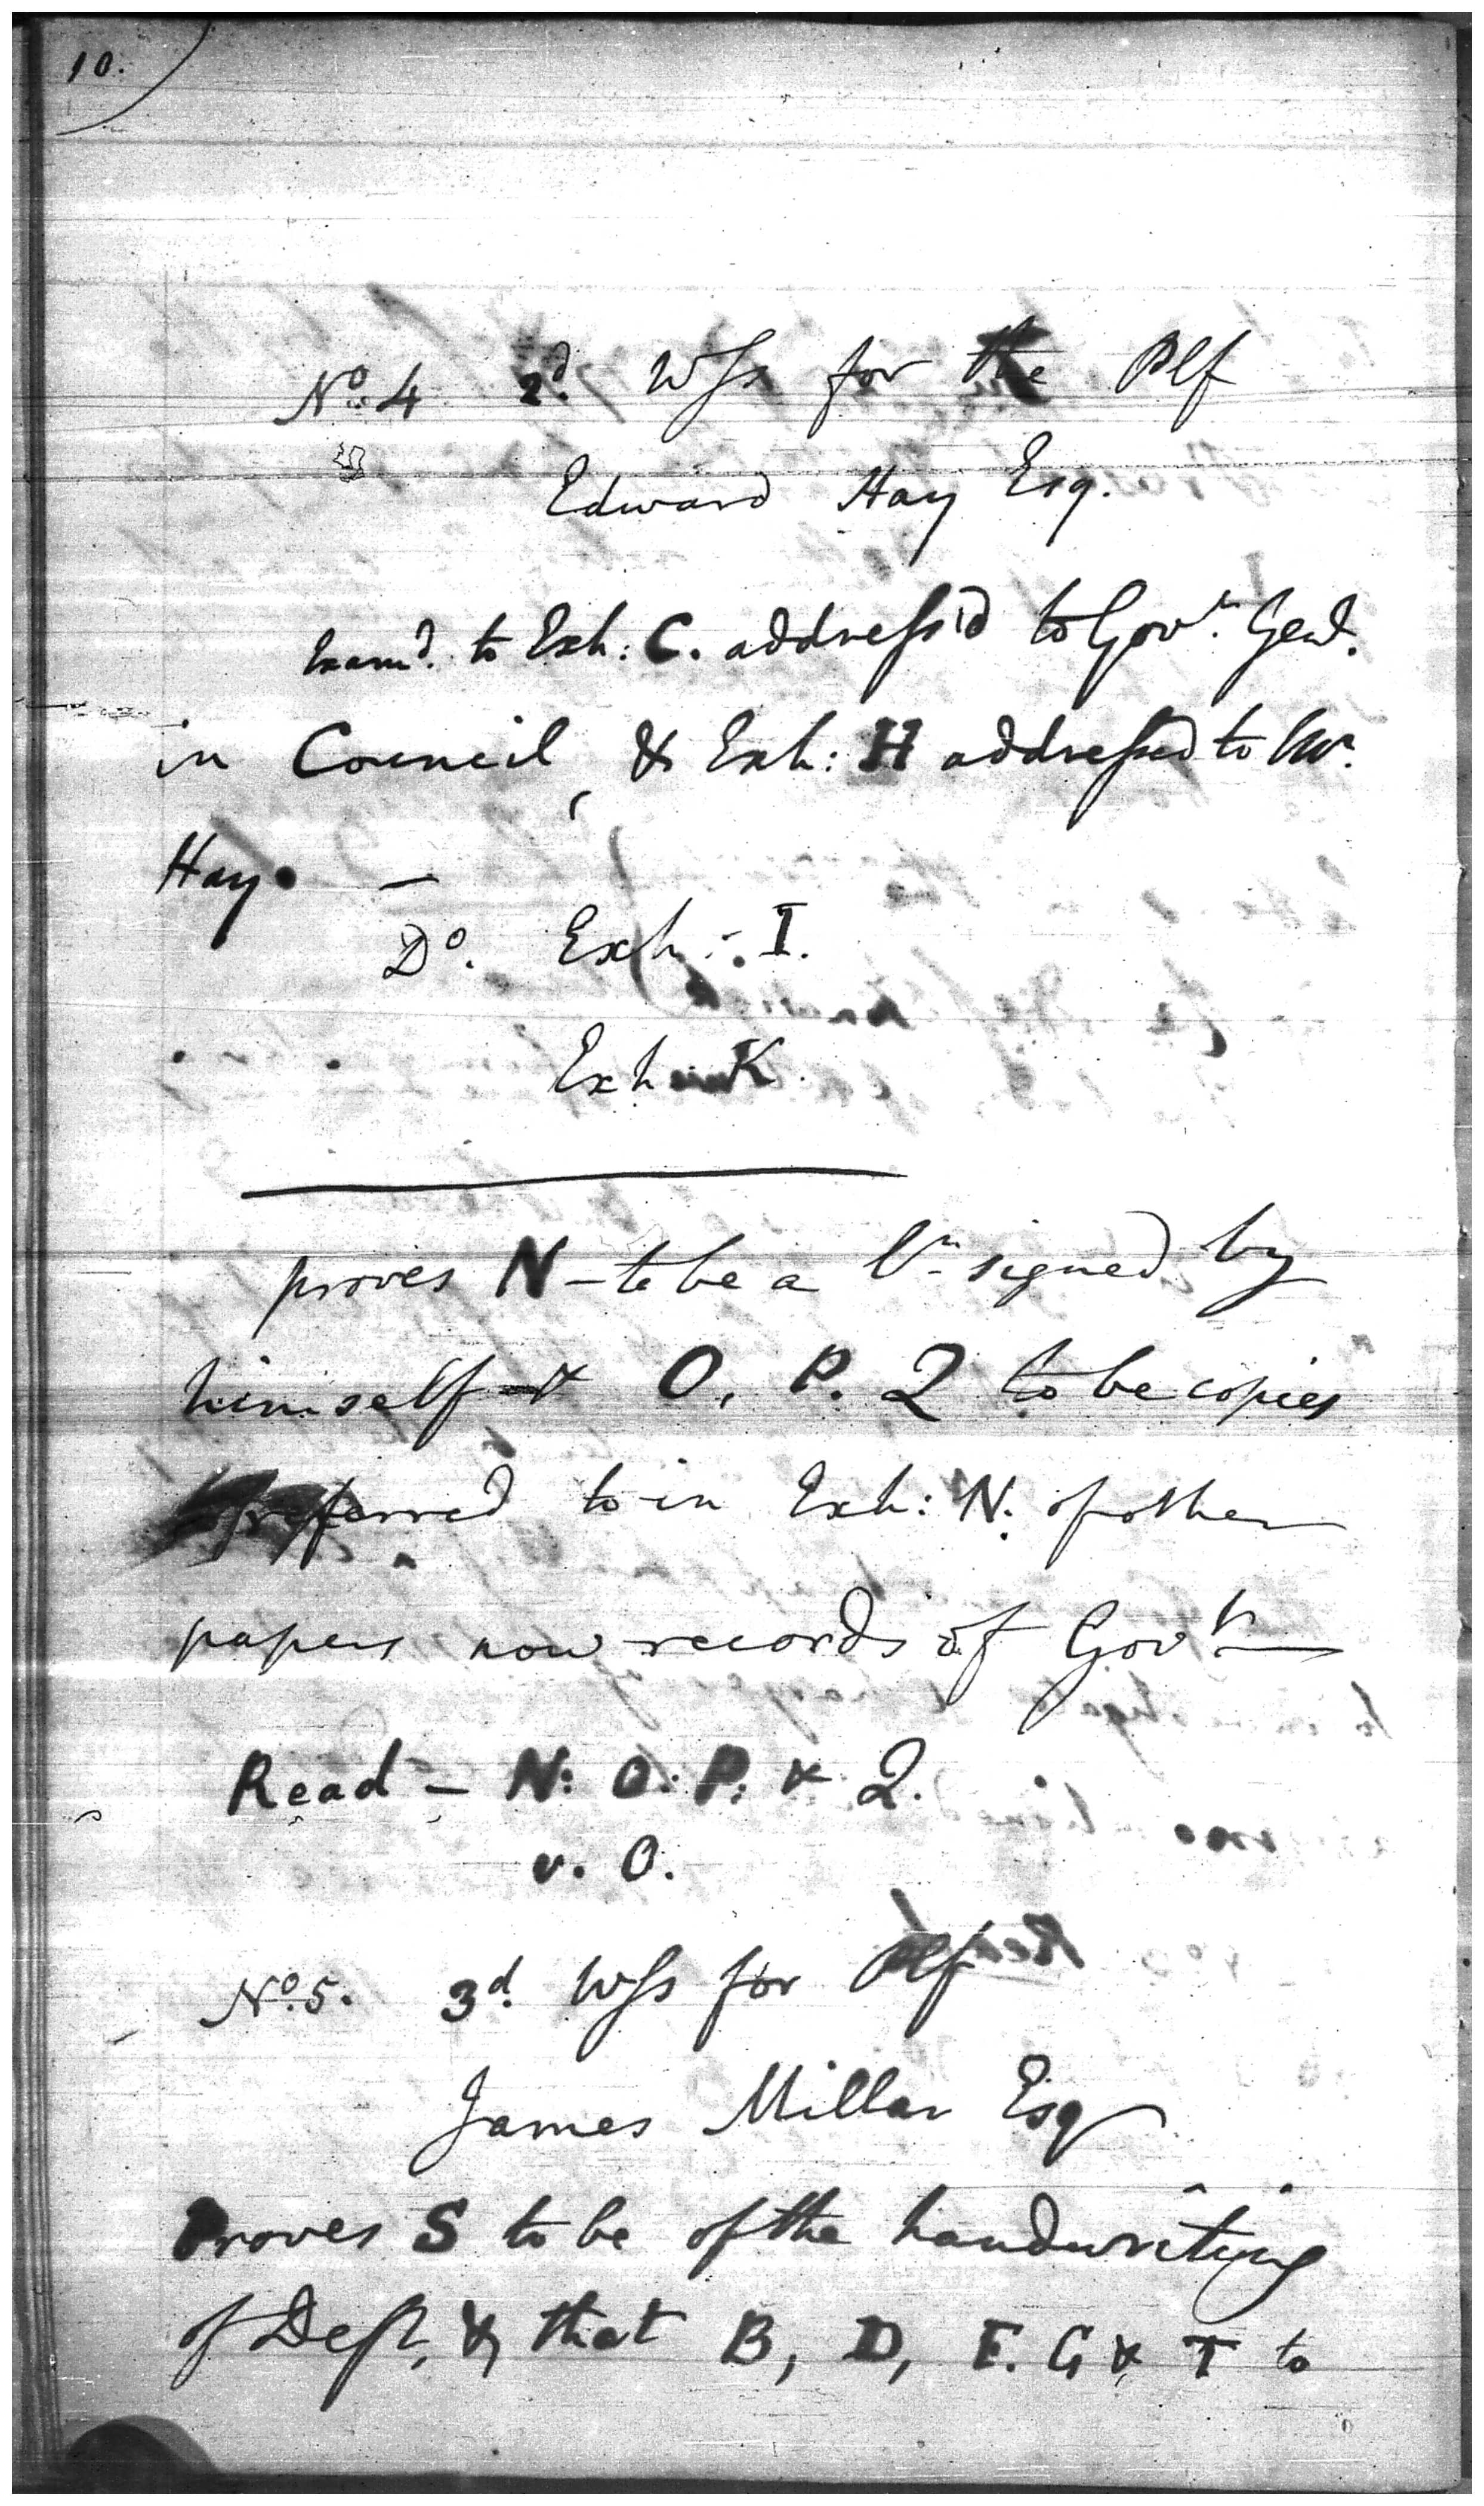 10.
No. 4 2d. Wss for the Plf
Edward Hay Esq.
Examd. to Exh: C. address'd to Govr. Genl.
in Council, & Exh: H addressed to Mr.
Hay. —
Do. Exh: I.
Exh: K.
proves N — to be a signed by
himself & O. P. Q to be copies
referred to in Exh: N. of other
papers now records of Govt
Read — N: O: P: & Q.
v. O.
No. 5. 3d. Wss for Plf
James Millar Esq
Proves S to be of the handwriting
of Deft, & that B, D, F. G & T to